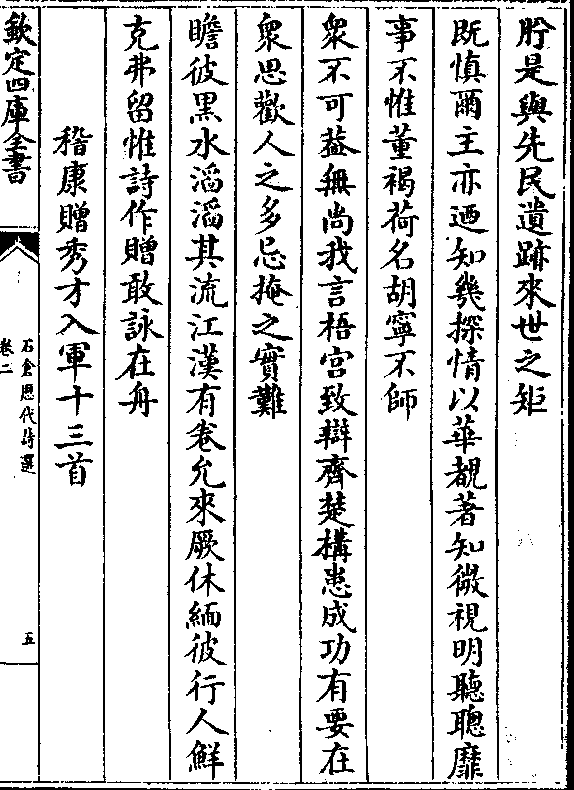 肸是與先民遺跡來世之矩
既慎爾主亦迺知幾探情以華覩著知微視明聽聰靡
事不惟董褐荷名胡寧不師
衆不可葢無尚我言梧宮致辯齊楚構患成功有要在
衆思歡人之多忌掩之實難
瞻彼黑水滔滔其流江漢有卷允來厥休緬彼行人鮮
克弗留惟詩作贈敢詠在舟
嵇康贈秀才入軍十三首
欽定四庫全書
石倉歷代詩選
卷二
五